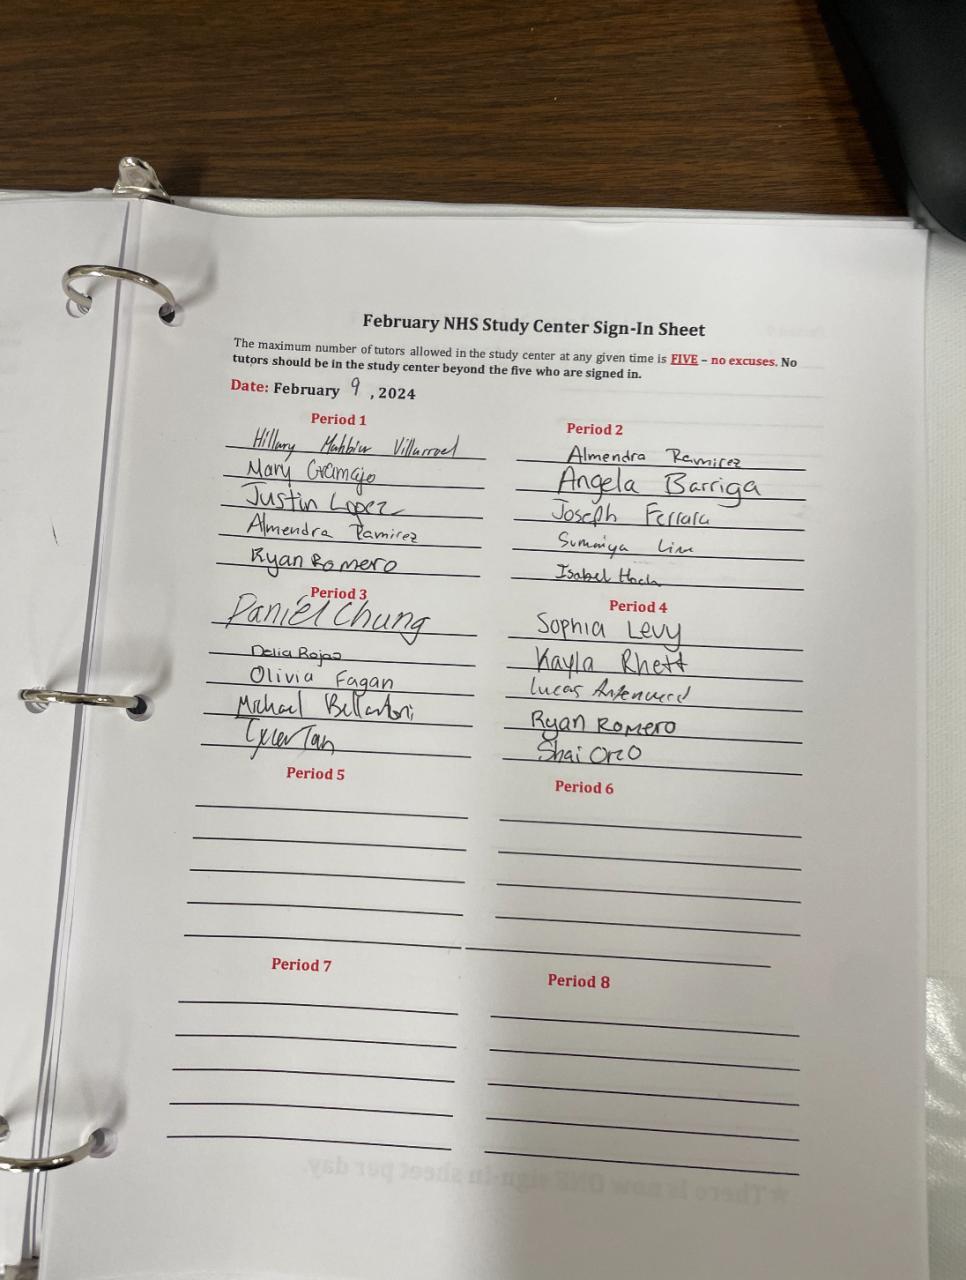 February NHS Study Center Sign-In Sheet
The maximum number of tutors allowed in the study center at any given time is FIVE – no excuses. No
tutors should be in the study center beyond the five who are signed in.
Date: February 9, 2024
Period 1
Hillary Mahbiw Villarroel
Mary Gramajo
Justin Lopez
Almendra Ramirez
Ryan Romero
Period 2
Almendra Ramirez
Angela Barriga
Joseph Ferrara
Summiya
Isabel
Period 3
Daniel Chung
Delia Rojas
Olivia Fagan
Michael
Tyler Tan
Period 4
Sophia Levy
Kayla Rhett
Lucas
Ryan Romero
Shai Orzo
Period 5
Period 6
Period 7
Period 8
★There is now ONE sign-in sheet per day.